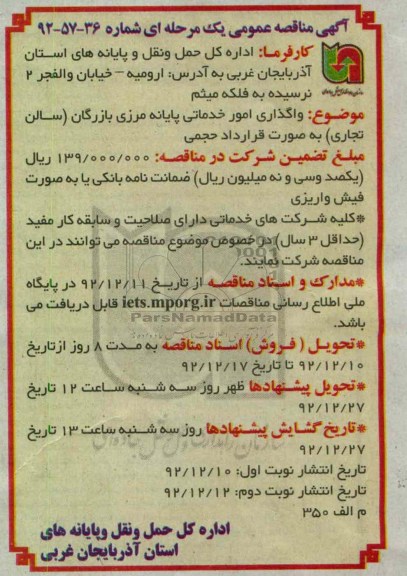 آگهی مناقصه عمومی یک مرحله ای شماره ۳۶-۵۷-۹۲
کارفرما: اداره کل حمل ونقل و پایانه های استان
آذربایجان غربی به آدرس: ارومیه – خیابان والفجر ۲
نرسیده به فلکه میثم
موضوع: واگذاری امور خدماتی پایانه مرزی بازرگان (سالن
تجاری) به صورت قرارداد حجمی
مبلغ تضمین شرکت در مناقصه: ۱۳۹/۰۰۰/۰۰۰ ریال
(یکصد وسی و نه میلیون ریال) ضمانت نامه بانکی یا به صورت
فیش واریزی
*کلیه شرکت های خدماتی دارای صلاحیت و سابقه کار مفید
(حداقل ۳ سال) در خصوص موضوع مناقصه می توانند در این
مناقصه شرکت نمایند.
*مدارک و اسناد مناقصه از تاریخ ۹۲/۱۲/۱۱ در پایگاه
ملی اطلاع رسانی مناقصات iets.mporg.ir قابل دریافت می
باشد.
ParsNamadData
*تحویل ( فروش) اسناد مناقصه به مدت ۸ روز ازتاریخ
۹۲/۱۲/۱۰ تا تاریخ ۹۲/۱۲/۱۷
*تحویل پیشنهادها ظهر روز سه شنبه ساعت ۱۲ تاریخ
۹۲/۱۲/۲۷
*تاریخ گشایش پیشنهادها روز سه شنبه ساعت ۱۳ تاریخ
۹۲/۱۲/۲۷
تاریخ انتشار نوبت اول: ۹۲/۱۲/۱۰
تاریخ انتشار نوبت دوم: ۹۲/۱۲/۱۲
م الف ۳۵۰
اداره کل حمل ونقل وپایانه های
استان آذربایجان غربی